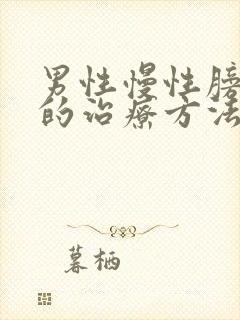 男性慢性膀
的治疗方法
暮栖